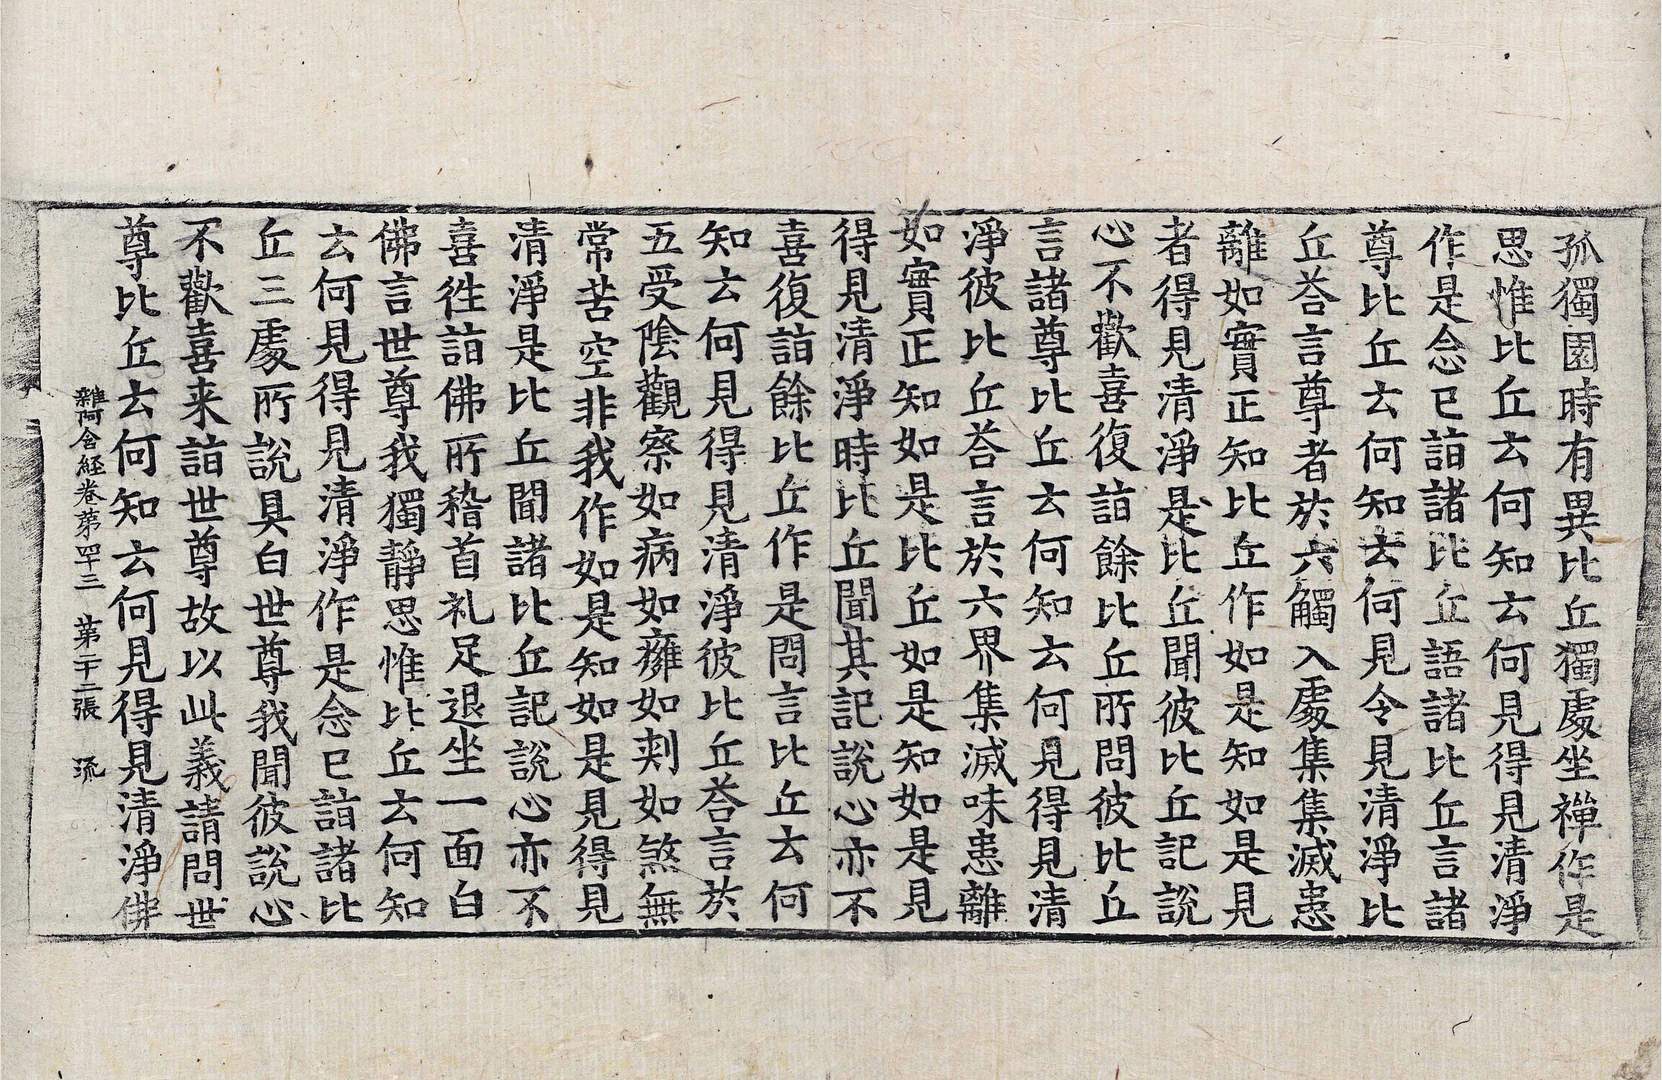 孤獨園時有異比丘獨處坐禪作是
思惟比丘云何知云何見得見清淨
作是念已詣諸比丘語諸比丘言諸
尊比丘云何知云何見令見清淨比
丘荅言尊者於六觸入處集集滅患
離如實正知比丘作如是知如是見
者得見清淨是比丘聞彼比丘記說
心不歡喜復詣餘比丘所問彼比丘
言諸尊比丘云何知云何見得見清
淨彼比丘荅言於六界集滅味患離
如實正知如是比丘如是知如是見
得見清淨時比丘聞其記說心亦不
喜復詣餘比丘作是問言比丘云何
知云何見得見清淨彼比丘荅言於
五受陰觀察如病如癰如刾如煞無
常苦空非我作如是知如是見得見
清淨是比丘聞諸比丘記說心亦不
喜徃詣佛所稽首礼足退坐一面白
佛言世尊我獨靜思惟比丘云何知
云何見得見清淨作是念已詣諸比
丘三處所說具白世尊我聞彼說心
不歡喜来詣世尊故以此義請問世
尊比丘云何知云何見得見清淨佛
雜阿含経卷苐四十三　苐二十二張　流